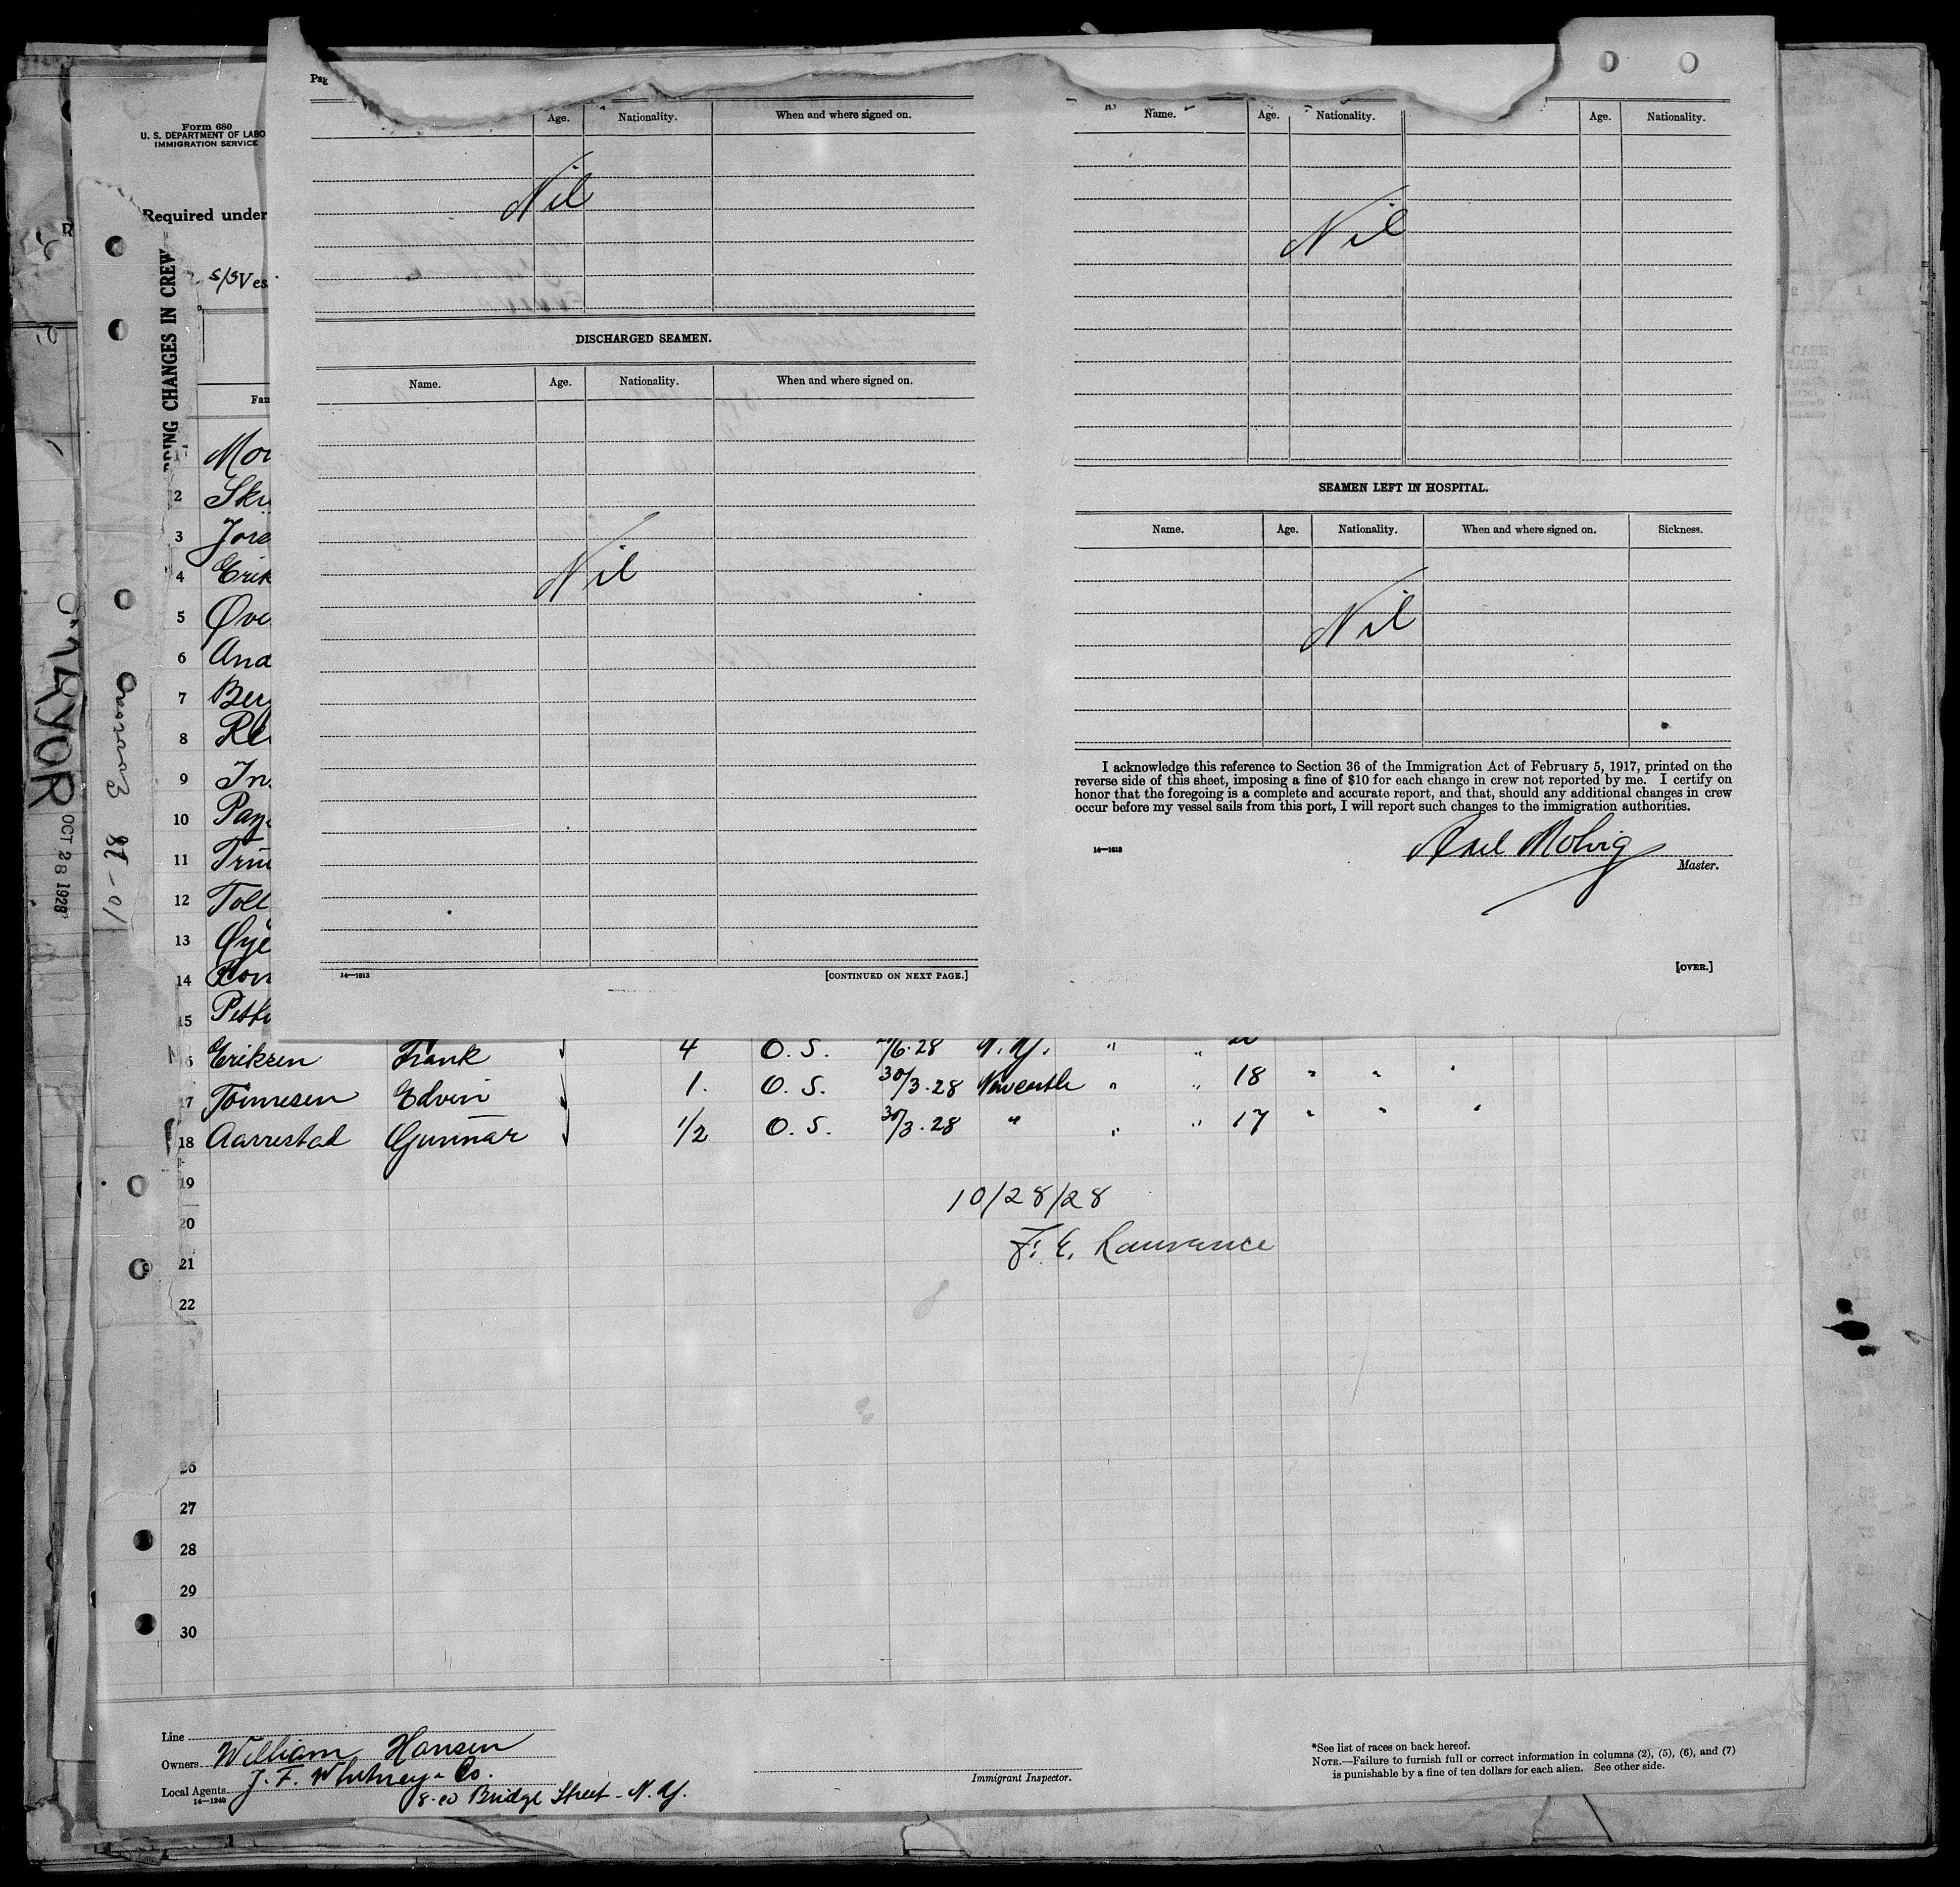 Form 680
U. S. DEPARTMENT OF LABO
IMMIGRATION SERVICE
Required under
S/S Ves
RDING CHANGES IN CREW
Pag
Age. Nationality. When and where signed on.
Nil
DISCHARGED SEAMEN.
Name. Age. Nationality. When and where signed on.
Nil
14—1613 [CONTINUED ON NEXT PAGE.]
Name. Age. Nationality. Age. Nationality.
Nil
SEAMEN LEFT IN HOSPITAL.
Name. Age. Nationality. When and where signed on. Sickness.
Nil
I acknowledge this reference to Section 36 of the Immigration Act of February 5, 1917, printed on the
reverse side of this sheet, imposing a fine of $10 for each change in crew not reported by me. I certify on
honor that the foregoing is a complete and accurate report, and that, should any additional changes in crew
occur before my vessel sails from this port, I will report such changes to the immigration authorities.
14—1613
Axel Molvig
Master.
[OVER.]
Fam
1 Mor
2 Sku
3 Jore
4 Erik
5 Øve
6 And
7 Ber
8
9 In
10
11
12 Toll
13 Øye
14
15
6 Eriksen Frank 4 O. S. /6.28 N. Y. " "
17 Tönnesen Edvin 1. O. S. 30/3.28 Newcastle " " 18 " " "
18 Aarrestad Gunnar 1/2 O. S. 30/3.28 " " " 17 " " "
19
10/28/28
20
F. E. Lawrence
21
22
26
27
28
29
30
Line
Owners William Hansen
Local Agents J. F. Whitney & Co.
14—1240
8-10 Bridge Street - N. Y.
Immigrant Inspector.
*See list of races on back hereof.
NOTE.—Failure to furnish full or correct information in columns (2), (5), (6), and (7)
is punishable by a fine of ten dollars for each alien. See other side.
OCT 28 1928